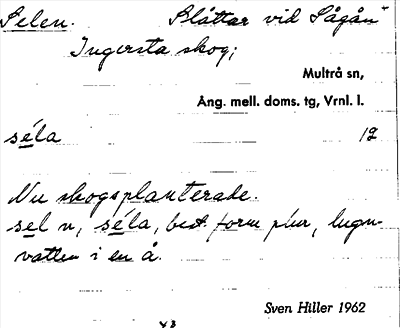 Selen. Slåttar vid Sågån"
Ingersta skog;
Multrå sn,
Ång. mell. doms. tg, Vrnl. l.
séla 12
Nu skogsplanterade.
sel n, séla, best. form plur, lugn-
vatten i en å.
Sven Hiller 1962